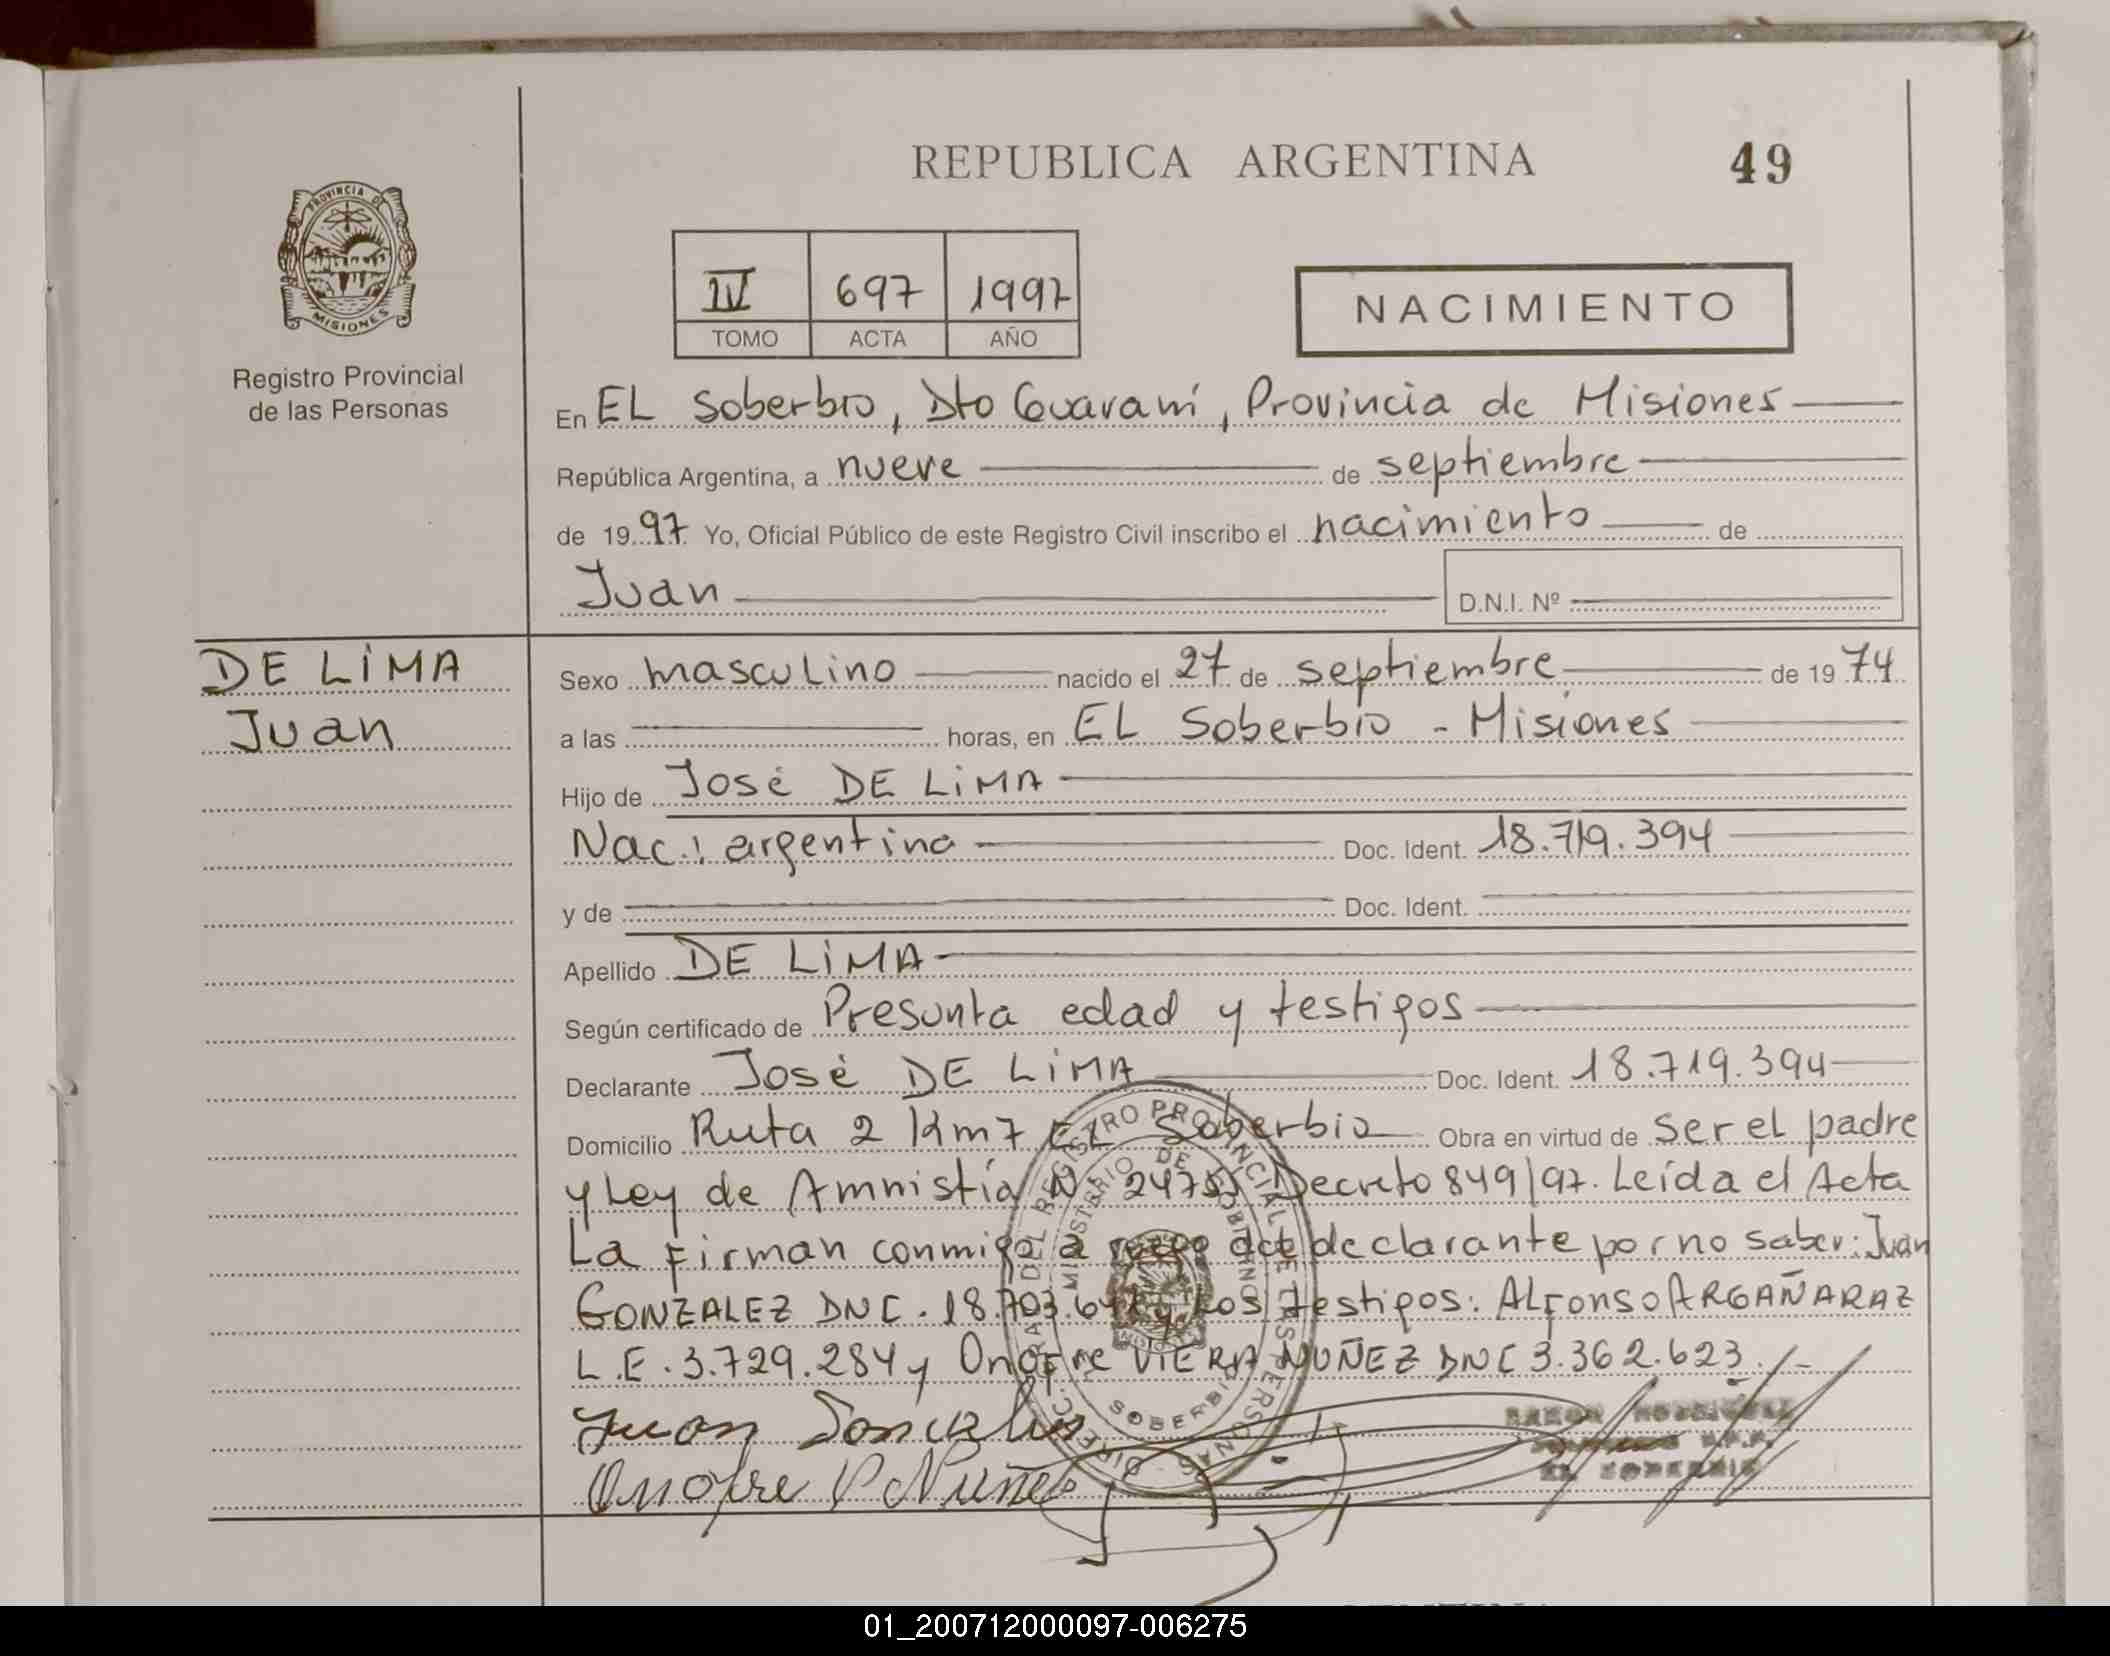 REPUBLICA ARGENTINA
49
PROVINCIA DE
MISIONES
Registro Provincial
de las Personas
IV 697 1997
TOMO ACTA AÑO
NACIMIENTO
En EL Soberbio, Dto Guaraní, Provincia de Misiones
República Argentina, a nueve de septiembre
de 1997 Yo, Oficial Público de este Registro Civil inscribo el nacimiento de
Juan D.N.I. Nº
DE LiMA
Juan
Sexo masculino nacido el 27 de septiembre de 1974
a las horas, en EL Soberbio - Misiones
Hijo de José DE LiMA
Nac.: argentina Doc. Ident. 18.719.394
y de Doc. Ident.
Apellido DE LiMA
Según certificado de Presunta edad y testigos
Declarante José DE LiMA Doc. Ident. 18.719.394
Domicilio Ruta 2 Km7 EL Soberbio Obra en virtud de ser el padre
y Ley de Amnistía Nº Decreto 849/97. Leída el Acta
La firman conmigo a ruego del declarante por no saber: Juan
GONZALEZ DNI. 18.703. y Los testigos: ALfonso ARGAÑARAZ
L.E. 3.729.284 y Onofre VIERA NUÑEZ DNI 3.362.623.-
Juan
Onofre V Nuñez
DIRECC. GRAL. DEL REGISTRO PROVINCIAL DE LAS PERSONAS
MINISTERIO DE GOBIERNO
SOBERBIO
EL SOBERBIO
01_200712000097-006275